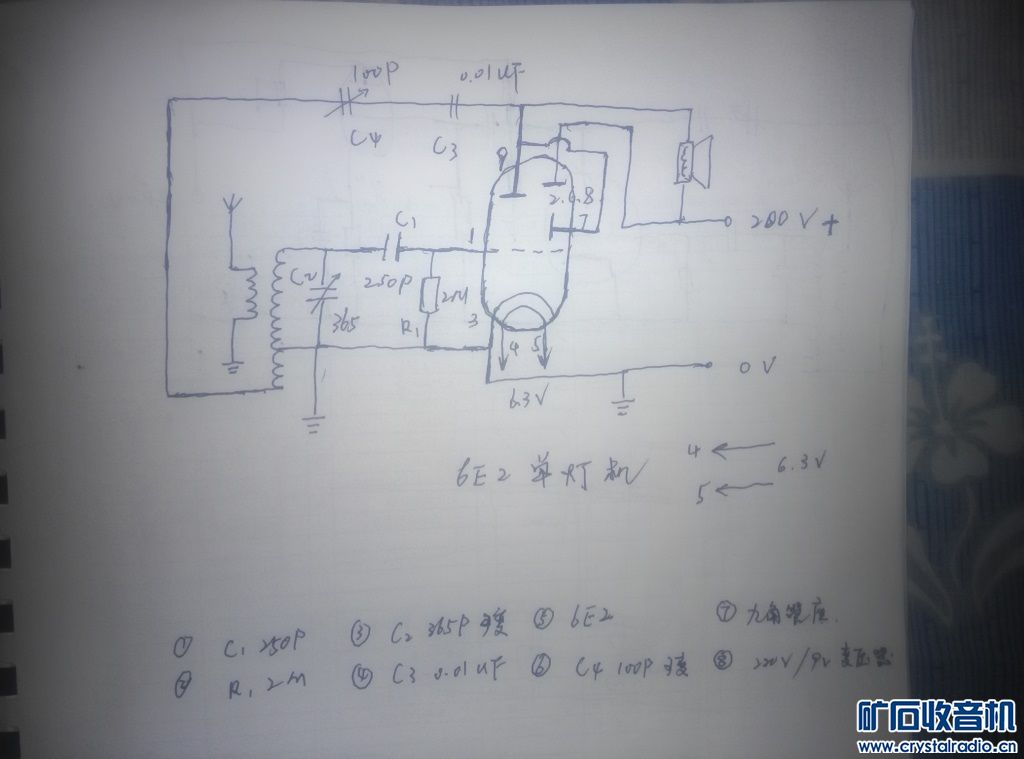 100P 0.01UF
C4 C3
9
2.6.8
7
200V+
C1
1
C2
250P
2M
365
R1
3
4 5
0V
6.3V
6E2 单灯机
4
6.3V
5
① C1 250P ③ C2 365P可变 ⑤ 6E2 ⑦ 九角管座.
② R1 2M ④ C3 0.01UF ⑥ C4 100P可变 ⑧ 220V/9V变压器
矿石收音机
www.crystalradio.cn